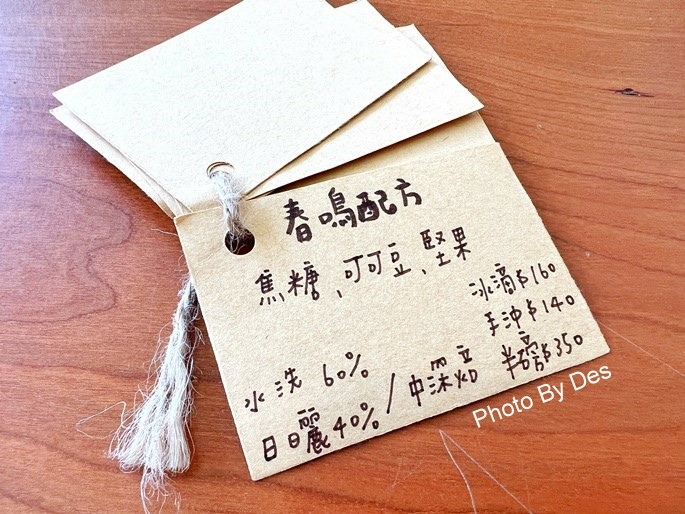 春鳴配方
焦糖、可可豆、堅果
冰滴$160
手沖$140
半磅$350
水洗 60%
日曬40% / 中深焙
Photo By Des